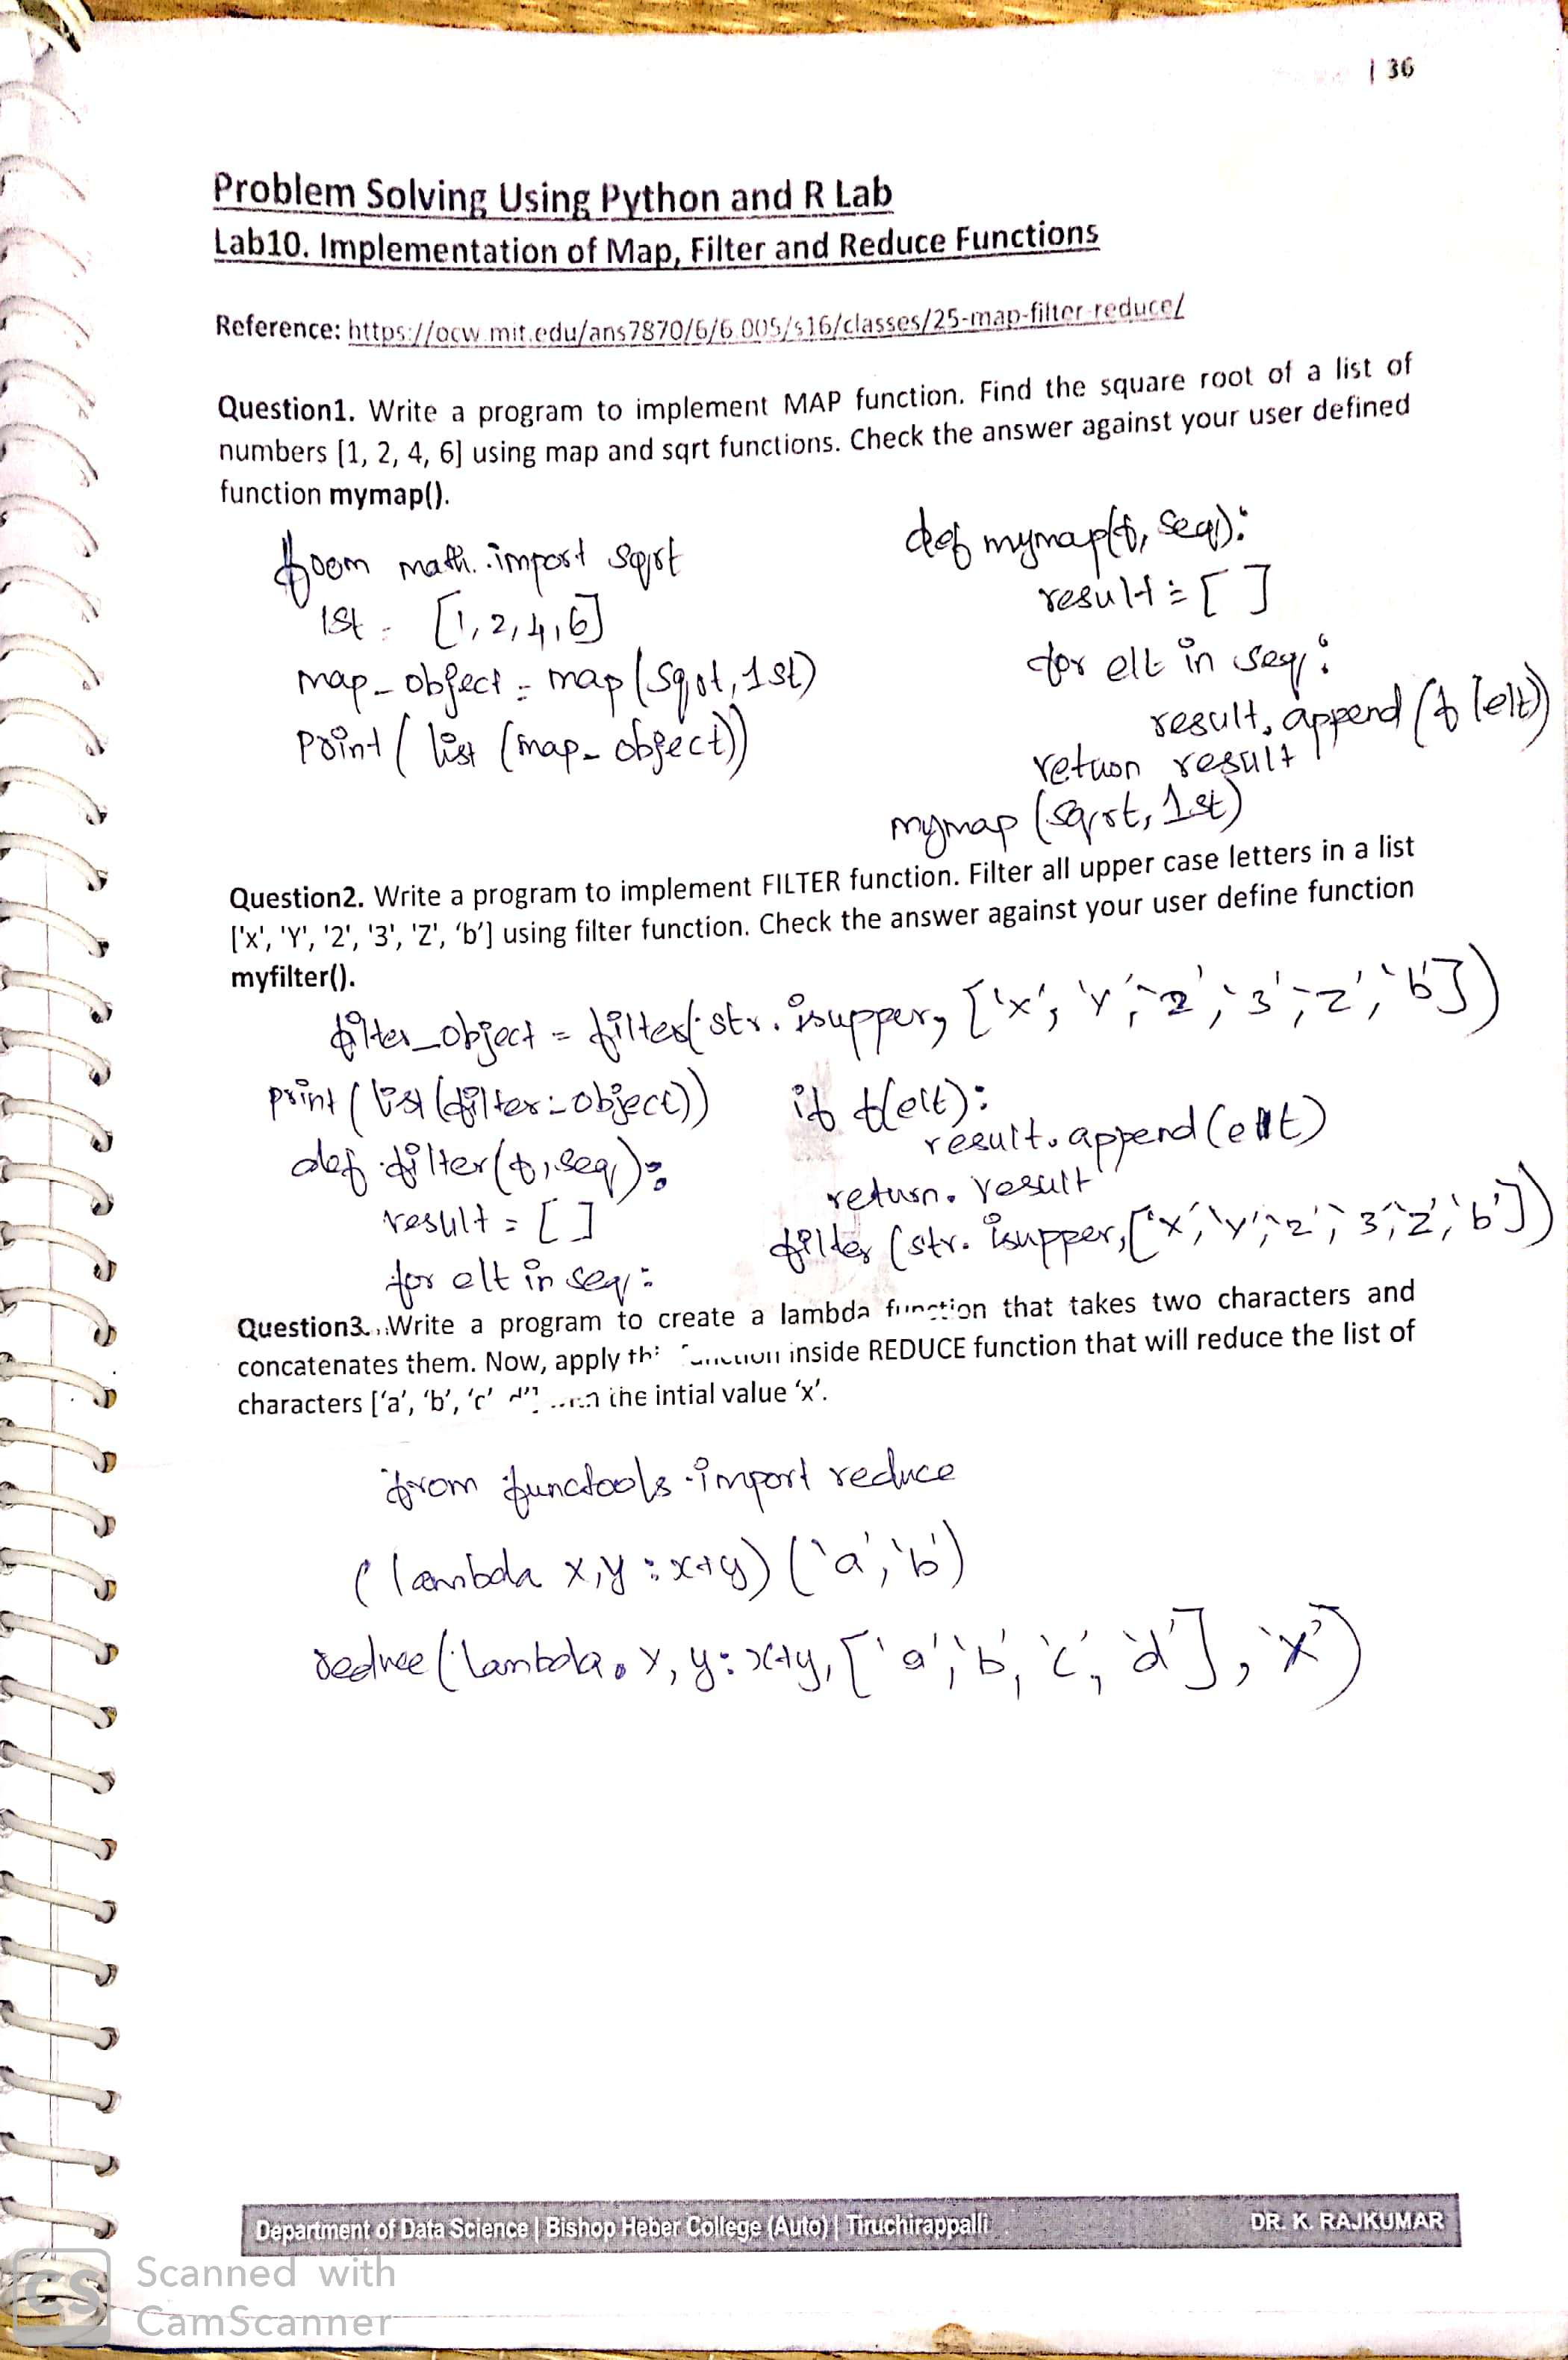 | 36
Problem Solving Using Python and R Lab
Lab10. Implementation of Map, Filter and Reduce Functions
Reference: https://ocw.mit.edu/ans7870/6/6.005/s16/classes/25-map-filter-reduce/
Question1. Write a program to implement MAP function. Find the square root of a list of
numbers [1, 2, 4, 6] using map and sqrt functions. Check the answer against your user defined
function mymap().
from math. import sqrt
lst = [1,2,4,6]
map_object = map (sqrt, lst)
print ( list (map_object))
def mymap(f, seq):
result = [ ]
for elt in seq:
result.append (f (elt))
return result
mymap (sqrt, lst)
Question2. Write a program to implement FILTER function. Filter all upper case letters in a list
['x', 'Y', '2', '3', 'Z', 'b'] using filter function. Check the answer against your user define function
myfilter().
filter_object = filter( str. isupper, ['x', 'Y', '2', '3', 'z', 'b'])
print ( list (filter_object))
def filter (f, seq):
result = [ ]
for elt in seq:
if f(elt):
result. append (elt)
return. result
filter (str. isupper, ['x', 'y', '2', '3', 'z', 'b'])
Question3. Write a program to create a lambda function that takes two characters and
concatenates them. Now, apply inside REDUCE function that will reduce the list of
characters ['a', 'b', 'c' the intial value 'x'.
from functools import reduce
( lambda x,y : x+y) ('a', 'b')
reduce ( lambda x, y: x+y, ['a', 'b', 'c', 'd'], 'x')
Department of Data Science | Bishop Heber College (Auto) | Tiruchirappalli
DR. K. RAJKUMAR
CS
Scanned with
CamScanner